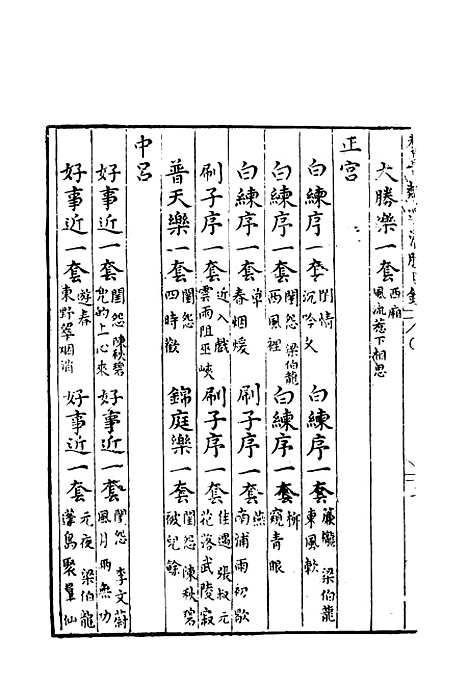 大勝樂一套 西廂 風流惹下相思
正宮
白練序一套 閨情 沉吟久
白練序一套 簾櫳 梁伯龍 東風軟
白練序一套 閨怨 梁伯龍 西風裡
白練序一套 柳 窺青眼
白練序一套 草 春烟煖
刷子序一套 燕 南浦雨初歇
刷子序一套 近入戲 雲雨阻巫峽
刷子序一套 佳遇 張叔元 花落武陵寂
普天樂一套 閨怨 四時歡
錦庭樂一套 閨怨 陳秋碧 破兒餘
中呂
好事近一套 閨怨 陳秋碧 兜的上心來
好事近一套 閨怨 李文蔚 風月兩無功
好事近一套 遊春 東野翠烟消
好事近一套 元夜 梁伯龍 蓬島聚羣仙